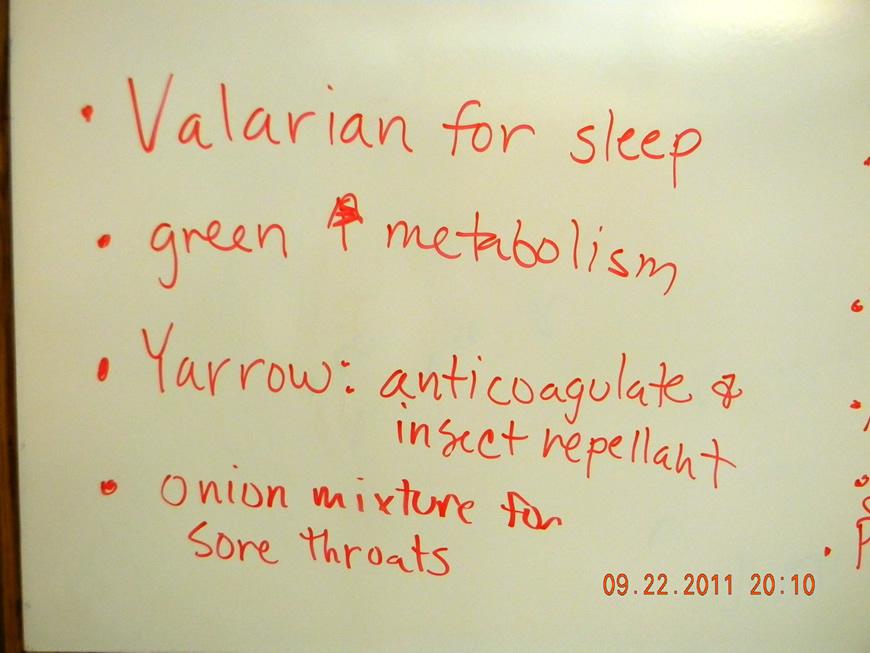 • Valarian for sleep
• green ↑ metabolism
• Yarrow: anticoagulate &
insect repellant
• onion mixture for
sore throats
09.22.2011 20:10